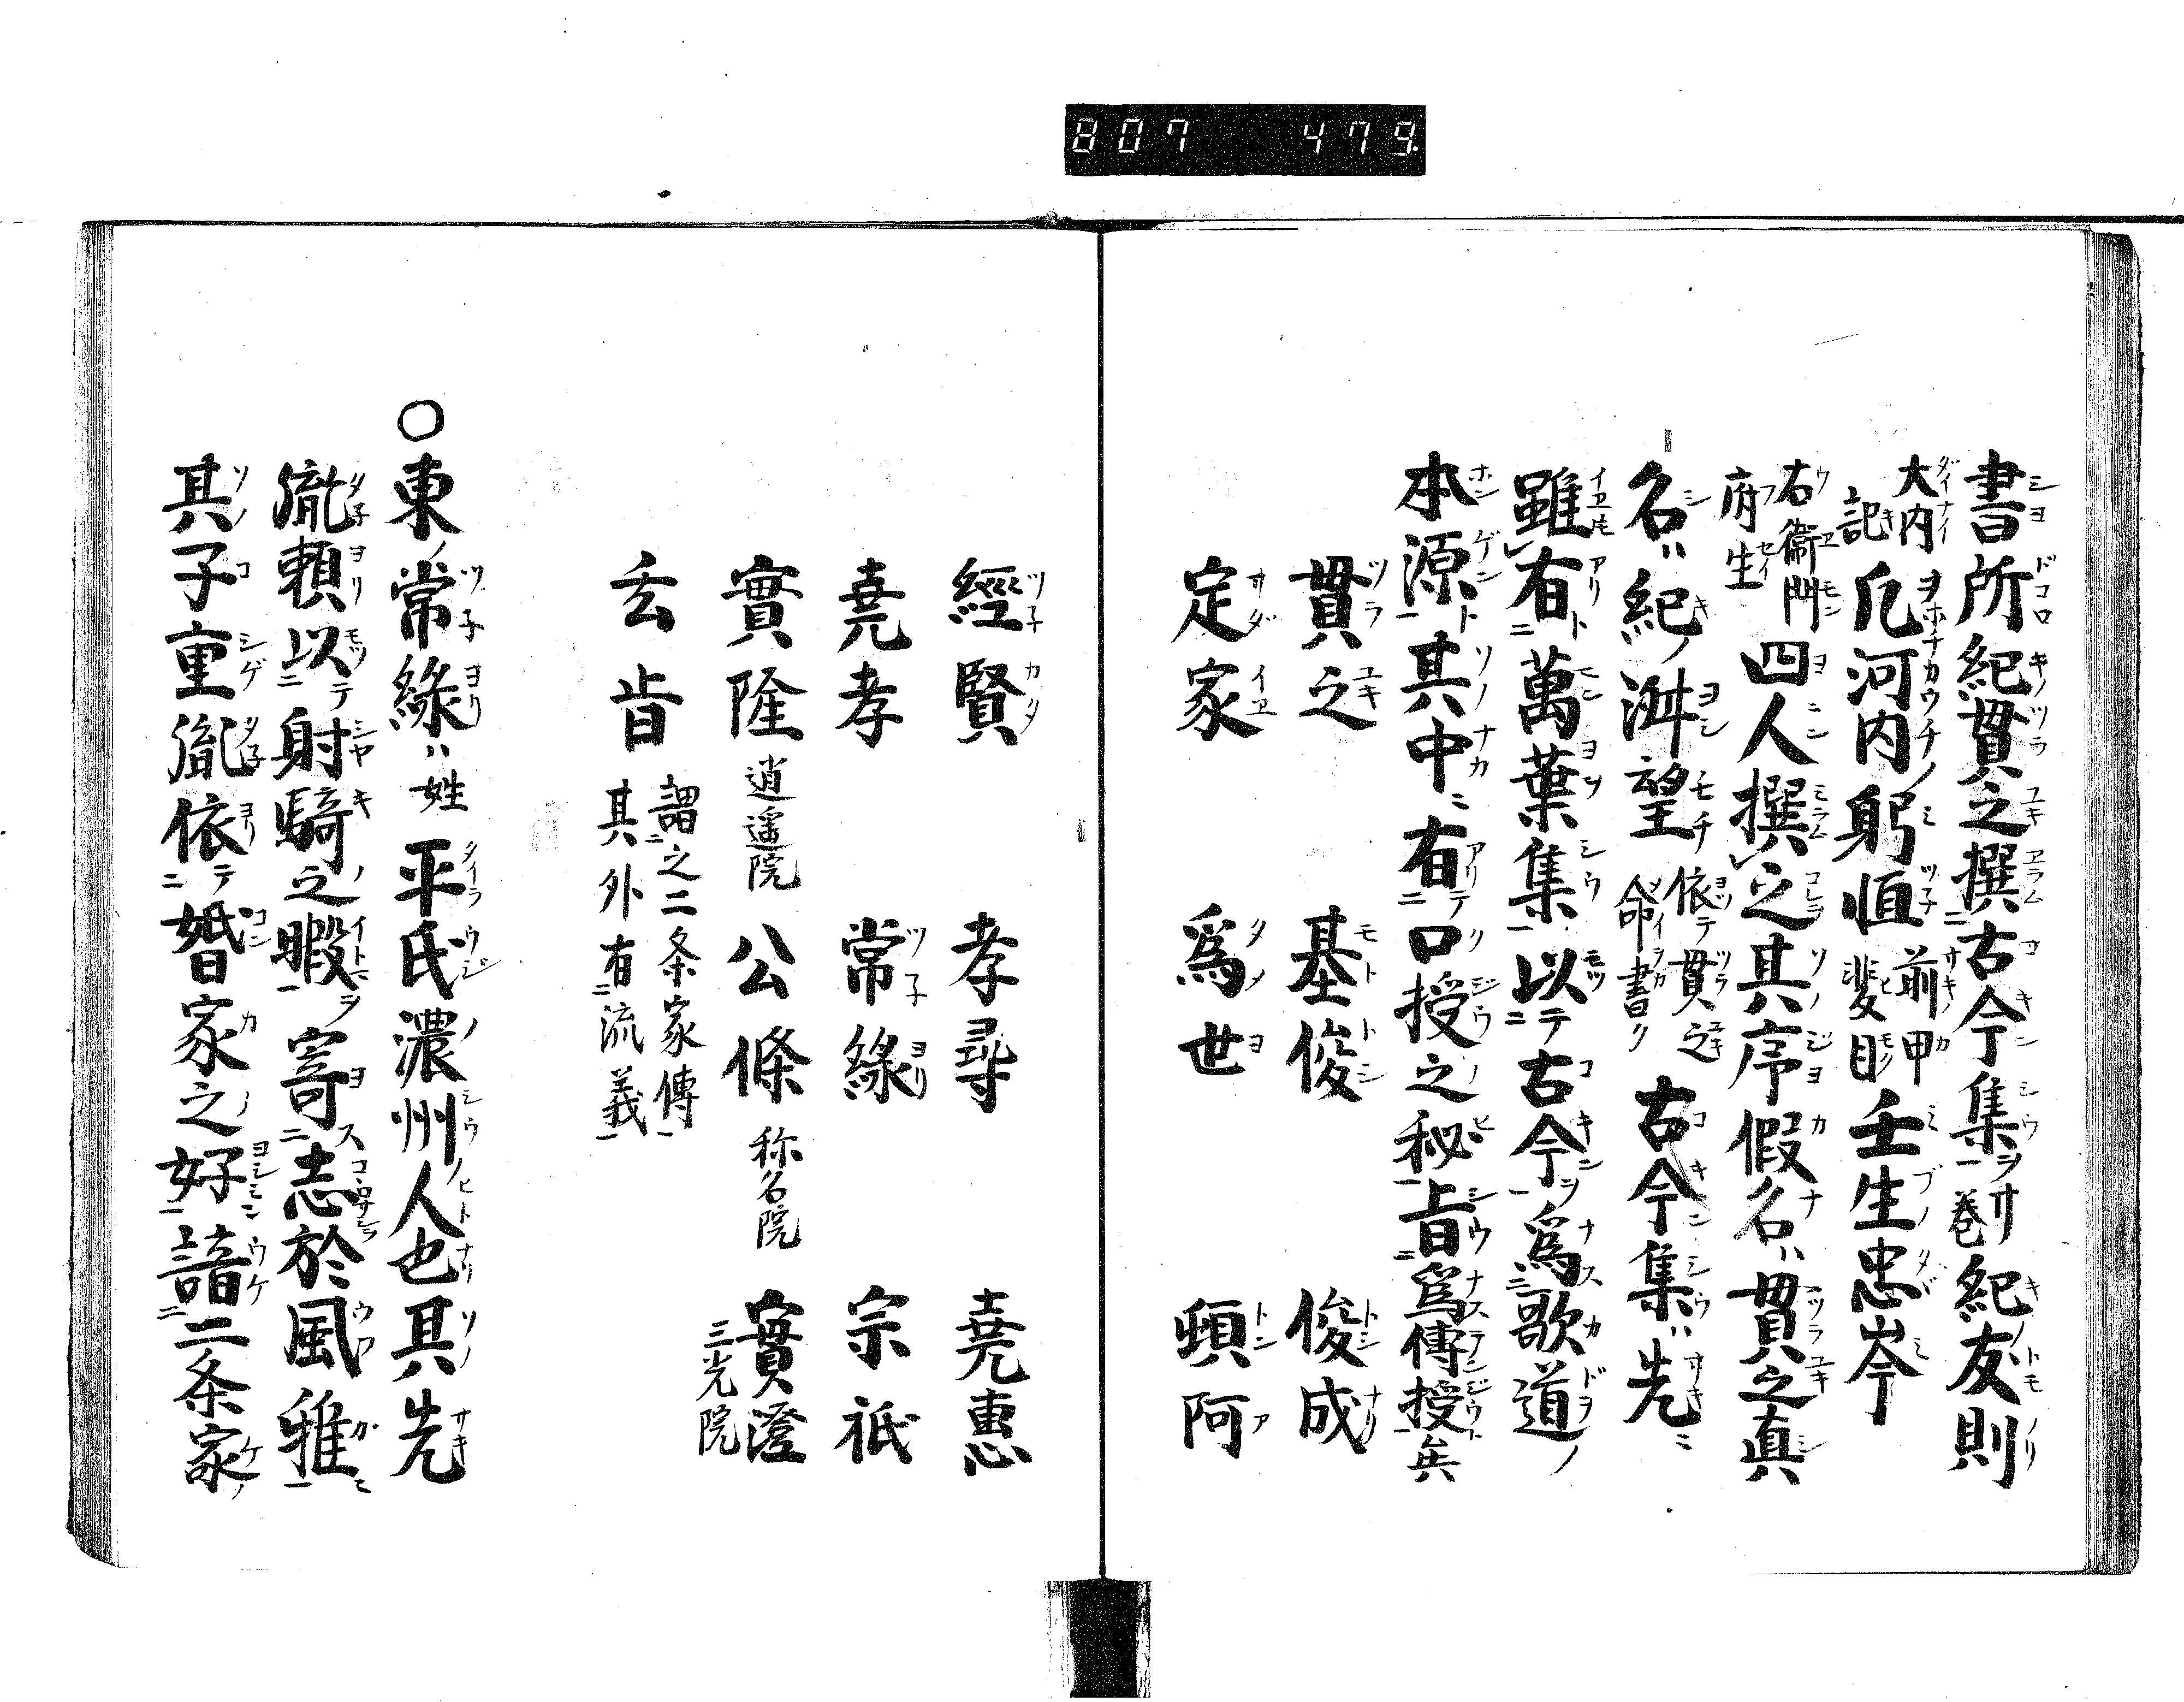 807 479
書所紀貫之撰古今集廿巻紀友則
大内記凡河内躬恒前甲斐目壬生忠岑
右衞門府生四人撰之其序假名ハ貫之真
名ハ紀ノ淑望依テ貫之命書ク古今集ハ先ニ
雖有萬葉集以テ古今ヲ爲歌道ノ
本源ト其中ニ有テ口授之秘旨爲傳授矣
貫之 基俊 俊成
定家 爲世 頓阿
經賢 孝尋 堯惠
堯孝 常緣 宗祇
實隆逍遥院 公條称名院 實澄三光院
玄旨 謂之二条家傳其外有流義
〇東ノ常緣ハ姓平氏濃州人也其先
胤頼以テ射騎之暇ヲ寄志於風雅
其子重胤依テ婚家之好諳二条家